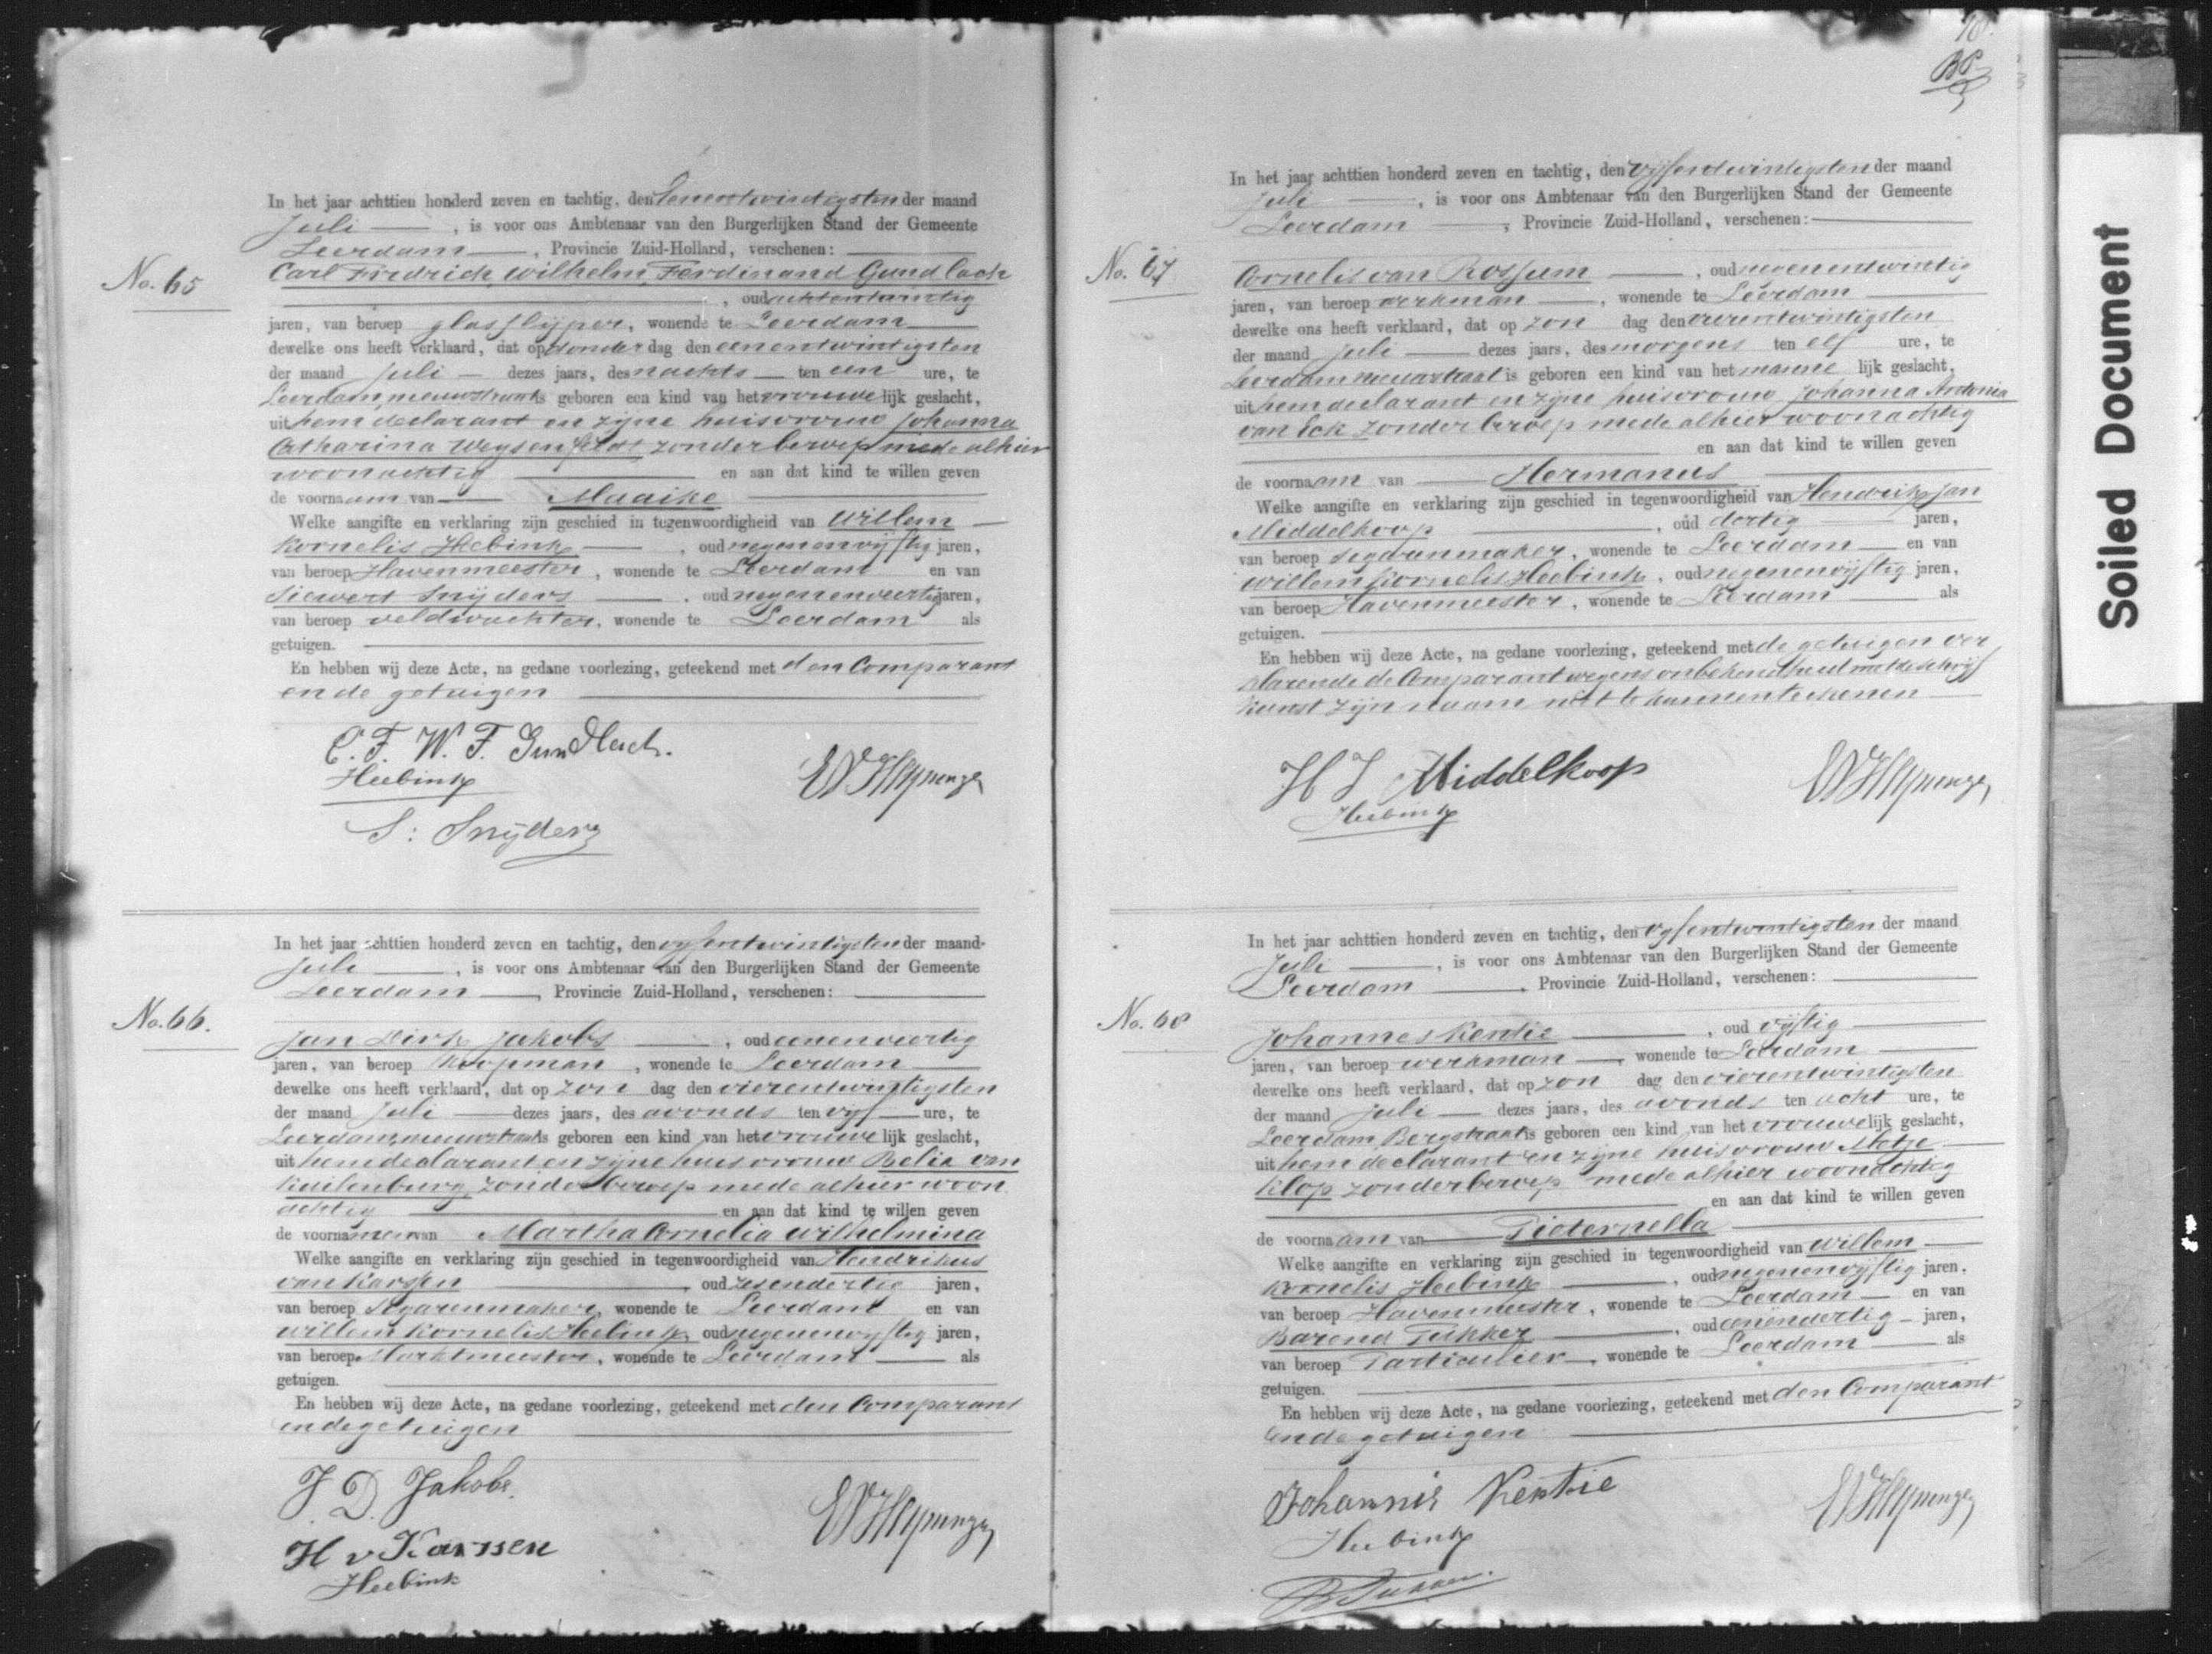 In het jaar achttien honderd zeven en tachtig, den eenentwintigsten der maand
Juli, is voor ons Ambtenaar van den Burgerlijken Stand der Gemeente
Leerdam, Provincie Zuid-Holland, verschenen:
No. 65
Carl Friedrich, Wilhelm, Ferdinand Gundlach
, oud achtentwintig
jaren, van beroep glasslijper, wonende te Leerdam
dewelke ons heeft verklaard, dat op donderdag den eenentwintigsten
der maand Juli dezes jaars, des nachts ten een ure, te
Leerdam, nieuwstraat is geboren een kind van het vrouwelijk geslacht,
uit hem declarant en zijne huisvrouw Johanna
Catharina Weysenfeldt zonder beroep mede alhier
woonachtig en aan dat kind te willen geven
de voornaam van Maaike
Welke aangifte en verklaring zijn geschied in tegenwoordigheid van Willem
Kornelis Heebink, oud negenenvijftig jaren,
van beroep Havenmeester, wonende te Leerdam en van
Siewert Snijders, oud negenenveertig jaren,
van beroep veldwachter, wonende te Leerdam als
getuigen.
En hebben wij deze Acte, na gedane voorlezing, geteekend met den Comparant
en de getuigen
C. F. W. F. Gundlach.
Heebink
S: Snijders
In het jaar achttien honderd zeven en tachtig, den vijfentwintigsten der maand
Juli, is voor ons Ambtenaar van den Burgerlijken Stand der Gemeente
Leerdam, Provincie Zuid-Holland, verschenen:
No. 66.
Jan Dirk Jakobs, oud eenenveertig
jaren, van beroep Koopman, wonende te Leerdam
dewelke ons heeft verklaard, dat op zondag den vierentwintigsten
der maand Juli dezes jaars, des avonds ten vijf ure, te
Leerdam, nieuwstraat is geboren een kind van het vrouwelijk geslacht,
uit hem declarant en zijne huisvrouw Belia van
Kuilenburg, zonder beroep mede alhier woon
achtig en aan dat kind te willen geven
de voornamen van Martha Cornelia Wilhelmina
Welke aangifte en verklaring zijn geschied in tegenwoordigheid van Hendrikus
van Karssen oud zesendertig jaren,
van beroep Segarenmaker, wonende te Leerdam en van
Willem Kornelis Heebink, oud negenenvijftig jaren,
van beroep Marktmeester, wonende te Leerdam als
getuigen.
En hebben wij deze Acte, na gedane voorlezing, geteekend met den Comparant
en de getuigen
J. D. Jakobs.
H v Karssen
Heebink
In het jaar achttien honderd zeven en tachtig, den vijfentwintigsten der maand
Juli, is voor ons Ambtenaar van den Burgerlijken Stand der Gemeente
Leerdam, Provincie Zuid-Holland, verschenen:
No. 67
Cornelis van Rossum, oud negenentwintig
jaren, van beroep werkman, wonende te Leerdam
dewelke ons heeft verklaard, dat op zondag den vierentwintigsten
der maand Juli dezes jaars, des morgens ten elf ure, te
Leerdam nieuwstraat is geboren een kind van het mannelijk geslacht,
uit hem declarant en zijne huisvrouw Johanna Antonia
van Eck zonder beroep mede alhier woonachtig
en aan dat kind te willen geven
de voornaam van Hermanus
Welke aangifte en verklaring zijn geschied in tegenwoordigheid van Hendrik Jan
Middelkoop, oud dertig jaren,
van beroep Segarenmaker, wonende te Leerdam en van
Willem Kornelis Heebink, oud negenenvijftig jaren,
van beroep Havenmeester, wonende te Leerdam als
getuigen.
En hebben wij deze Acte, na gedane voorlezing, geteekend met de getuigen ver
klarende de Comparant wegens onbekendheid met de schrijf
kunst zijn naam niet te kunnen teekenen
H J Middelkoop
Heebink
In het jaar achttien honderd zeven en tachtig, den vijfentwintigsten der maand
Juli, is voor ons Ambtenaar van den Burgerlijken Stand der Gemeente
Leerdam, Provincie Zuid-Holland, verschenen:
No. 68
Johannes Kentie, oud vijftig
jaren, van beroep werkman, wonende te Leerdam
dewelke ons heeft verklaard, dat op zondag den vierentwintigsten
der maand Juli dezes jaars, des avonds ten acht ure, te
Leerdam, Bergstraat is geboren een kind van het vrouwelijk geslacht,
uit hem declarant en zijne huisvrouw
Klop zonder beroep mede alhier woonachtig
en aan dat kind te willen geven
de voornaam van Pieternella
Welke aangifte en verklaring zijn geschied in tegenwoordigheid van Willem
Kornelis Heebink, oud negenenvijftig jaren,
van beroep Havenmeester, wonende te Leerdam en van
Barend Tukker, oud eenendertig jaren,
van beroep Particulier, wonende te Leerdam als
getuigen.
En hebben wij deze Acte, na gedane voorlezing, geteekend met den Comparant
en de getuigen
Johannis Kentie
Heebink
B Tukker.
Soiled Document